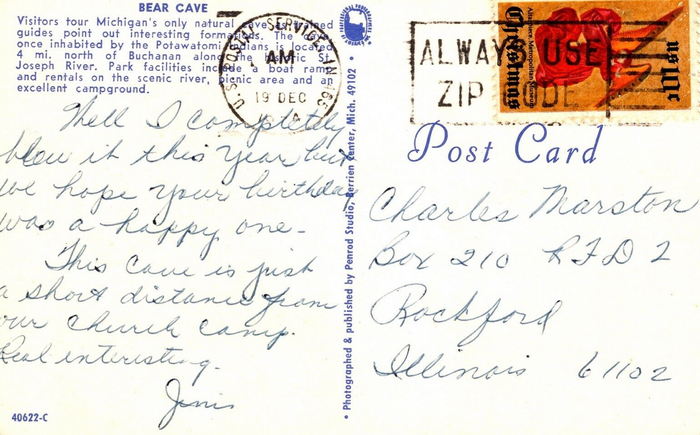 BEAR CAVE
Visitors tour Michigan's only natural cave trained
guides point out interesting formations. The
once inhabited by the Potawatomi Indians is located
4 mi. north of Buchanan along the St.
Joseph River. Park facilities include a boat ramp
and rentals on the scenic river, picnic area and an
excellent campground.
Well I completely
blew it this year but
we hope your birthday
was a happy one.
This cave is just
a short distance from
our church camp.
Real interesting.
40622-C
• Photographed & published by Penrod Studio, Berrien Center, Mich. 49102 •
U.S. POSTAL SERVICE
AM
19 DEC
ALWAYS USE
ZIP CODE
Christmas
US 8c
Post Card
Charles Marston
Box 210 RFD 2
Rockford
Illinois 61102